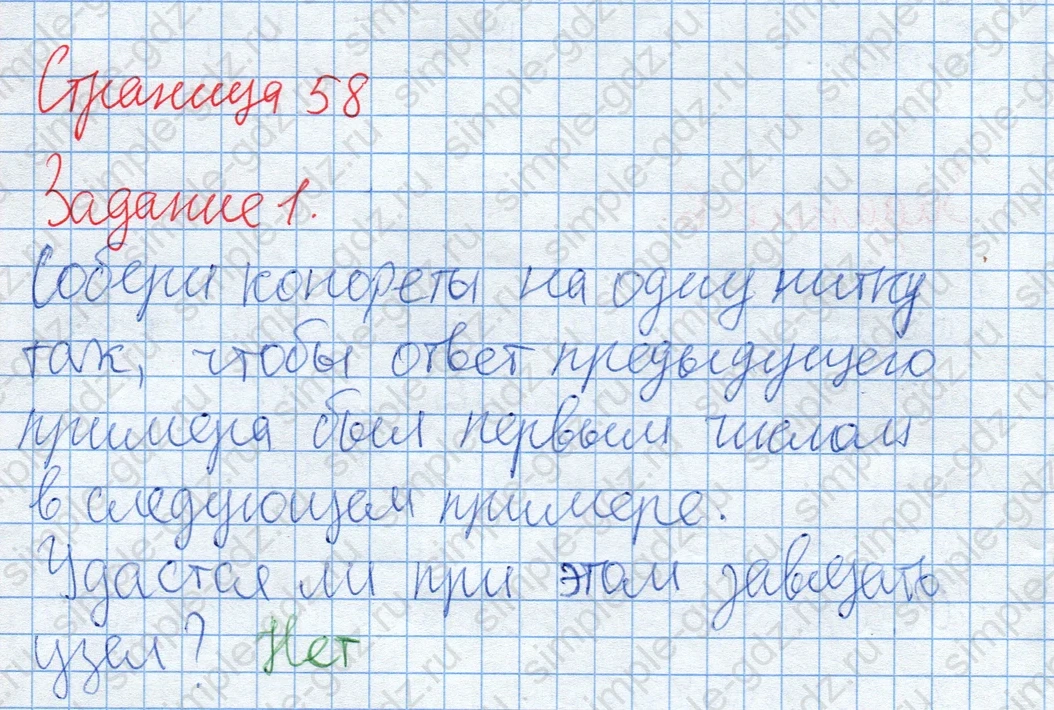 Страница 58
Задание 1.
Собери конфеты на одну нитку
так, чтобы ответ предыдущего
примера был первым числом
в следующем примере.
Удастся ли при этом завязать
узел? Нет